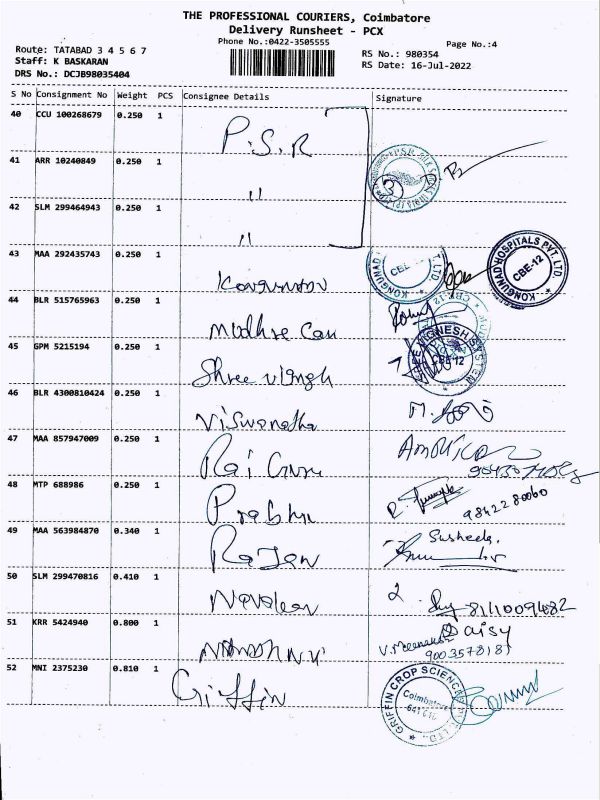 THE PROFESSIONAL COURIERS, Coimbatore
Delivery Runsheet - PCX
Phone No.:0422-3505555
Page No.:4
Route: TATABAD 3 4 5 6 7
RS No.: 980354
Staff: K BASKARAN
RS Date: 16-Jul-2022
DRS No.: DCJB98035404
S No Consignment No Weight PCS Consignee Details Signature
40 CCU 100268679 0.250 1 P.S.R
41 ARR 10240849 0.250 1 "
42 SLM 299464943 0.250 1 "
43 MAA 292435743 0.250 1
KONGUNAD HOSPITALS PVT. LTD
CBE-12
44 BLR 515765963 0.250 1
45 GPM 5215194 0.250 1 Shree
SREE VIGNESH SYSTEM
CBE-12
46 BLR 4300810424 0.250 1 Viswanatha
47 MAA 857947009 0.250 1 Raj
48 MTP 688986 0.250 1 Prabhu
9842280060
49 MAA 563984870 0.340 1 Rajan
Susheela.
50 SLM 299470816 0.410 1
8111009482
51 KRR 5424940 0.800 1
Daisy
V. Meenakshi
9003578187
52 MNI 2375230 0.810 1 Griffin
GRIFFIN CROP SCIENCE PVT. LTD.,
Coimbatore